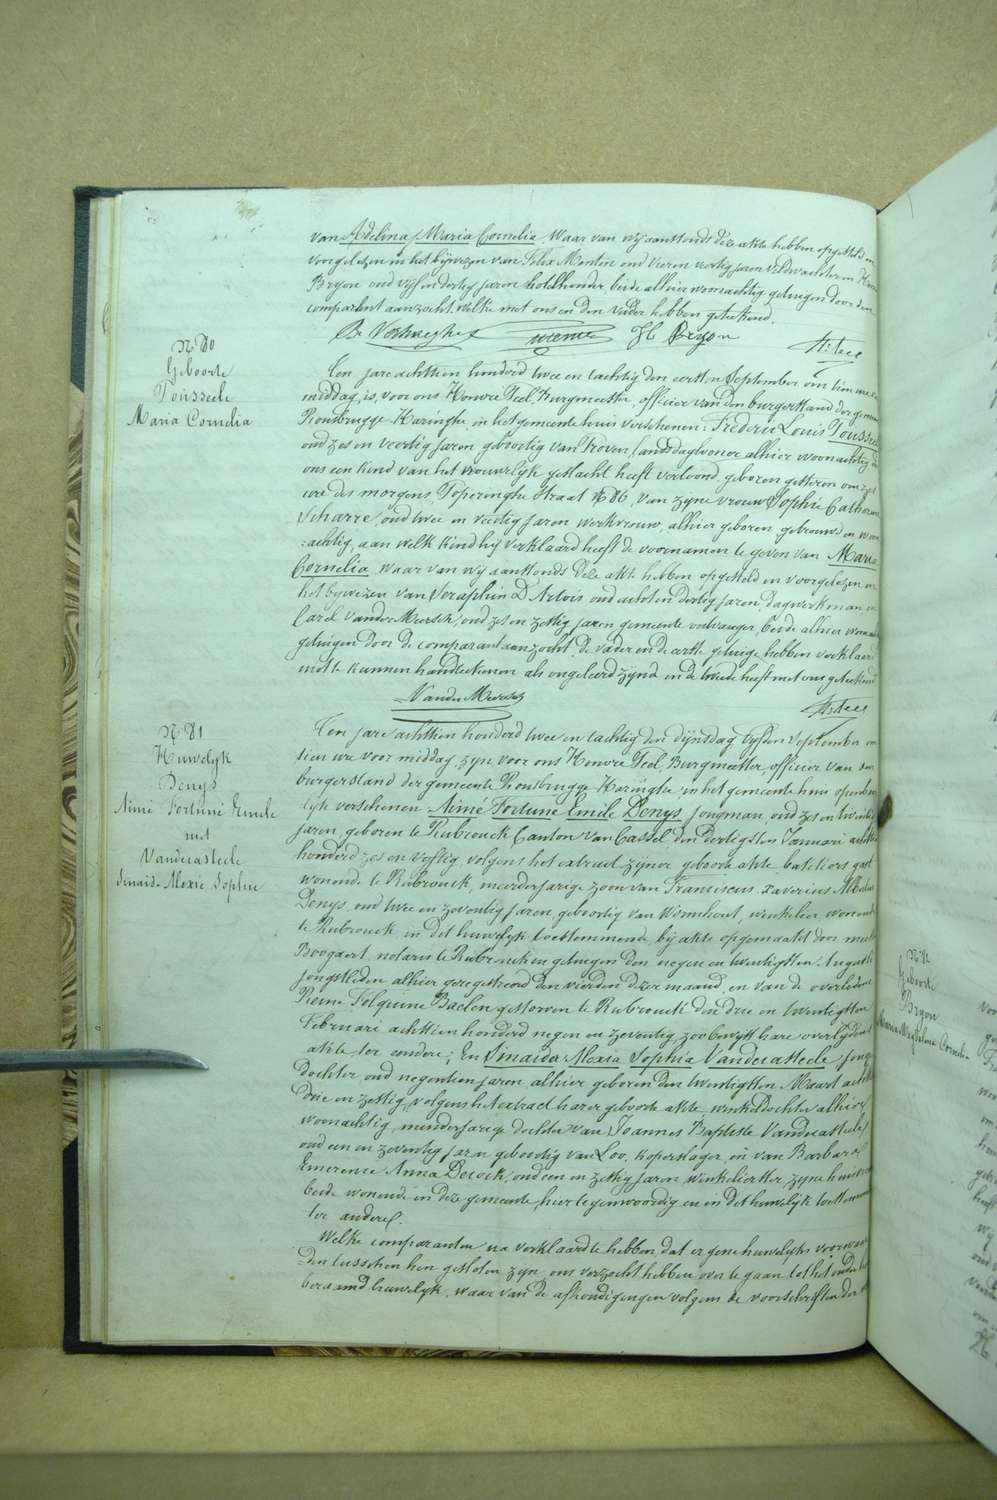 van Adelina Maria Cornelia. Waar van wij aanstonds deze akte hebben opgesteld en
voorgelezen in het bijwezen van Felix Manten oud vier en veertig jaren veldwachter en Henri
Bryon oud vijf en dertig jaren herbergier beide alhier woonachtig getuigen door den
comparant aanzocht, welke met ons en den vader hebben geteekend.
H Bryon
N 80
Geboorte
Toussele
Maria Cornelia
Ten jare achttien honderd twee en tachtig den eersten September om tien ure
middag, is, voor ons Honoré Teel, Burgmeester, officier van den burgerstand der gemeente
Rousbrugge Haringhe, in het gemeente huis verschenen: Frederic Louis
oud zes en veertig jaren geboortig van Proven landsdaglooner alhier woonachtig die
ons een kind van het vrouwelijk geslacht heeft vertoond, geboren gisteren om zes
ure des morgens Poperinghe straat N 86, van zyne vrouw Sophie Catherine
Scharre, oud twee en veertig jaren werkvrouw, alhier geboren, getrouwd en woon-
:achtig, aan welk kind hij verklaard heeft de voornamen te geven van Maria
Cornelia, waar van wij aanstonds deze akte hebben opgesteld en voorgelezen in
het bijwezen van Seraphin D'Artois oud acht en dertig jaren, dagwerkman en
Carel Vander Meersch, oud zes en zestig jaren gemeente ontvanger, beide alhier
getuigen door de comparant aanzocht de vader en de eerste getuige hebben verklaard
niet te kunnen handteekenen als ongeleerd zijnde en de tweede heeft met ons geteekend
VanderMeersch
N 81
Huwelyk
Denys
Aimé Fortuné Emile
met
Vandecasteele
Sinaïde Alexie Sophie
Ten jare achttien honderd twee en tachtig den dijnsdag vyfden September om
tien ure voor middag zyn voor ons Honoré Teel, Burgmeester, officier van den
burgerstand der gemeente Rousbrugge Haringhe in het gemeente huis openbaar-
lyk verschenen Aimé Fortuné Emile Denys, jongman, oud zes en twintig
jaren, geboren te Rubrouck Canton van Cassel, den dertigsten Januari achttien
honderd zes en vyftig, volgens het extract zijner geboorte akte,
wonende te Rubrouck, meerderjarige zoon van Franciscus Xaverius
Denys, oud twee en zeventig jaren, geboortig van Wormhout, winkelier wonende
te Rubrouck in dit huwelyk toestemmende, bij akte opgemaakt door meester
Boogaert notaris te Rubrouck en getuigen den negen en twintigsten Augusti
jongstleden alhier geregistreerd den vierden dezer maand, en van de overledene
Reine Folquine Baelen gestorven te Rubrouck den drie en twintigsten
Februari achttien honderd negen en zeventig zoo bewijst hare overlijdens
akte, ter eendere; En Sinaïda Alexia Sophia Vandecasteele, jonge
dochter oud negentien jaren, alhier geboren den twintigsten Maart achttien
drie en zestig, volgens het extract harer geboorte akte, winkeldochter alhier
woonachtig, minderjarige dochter van Joannes Baptiste Vandecasteele,
oud een en zeventig jaren geboortig van Loo, koperslager, en van Barbara
Emerence Anna Decock, oud een en zestig jaren, winkelierster, zyne huisvrouw
beide wonende in deze gemeente, hier tegenwoordig en in dit huwelyk toestemmende
ter andere.
Welke comparanten na verklaard te hebben dat er gene huwelyks voorwaar-
den tusschen hen gesloten zyn, ons verzocht hebben over te gaan tot het onder hen
beraamd huwelyk, waar van de afkondigingen volgens de voorschriften der
Geboorte
Bryon
Maria Magdalena Cornelia